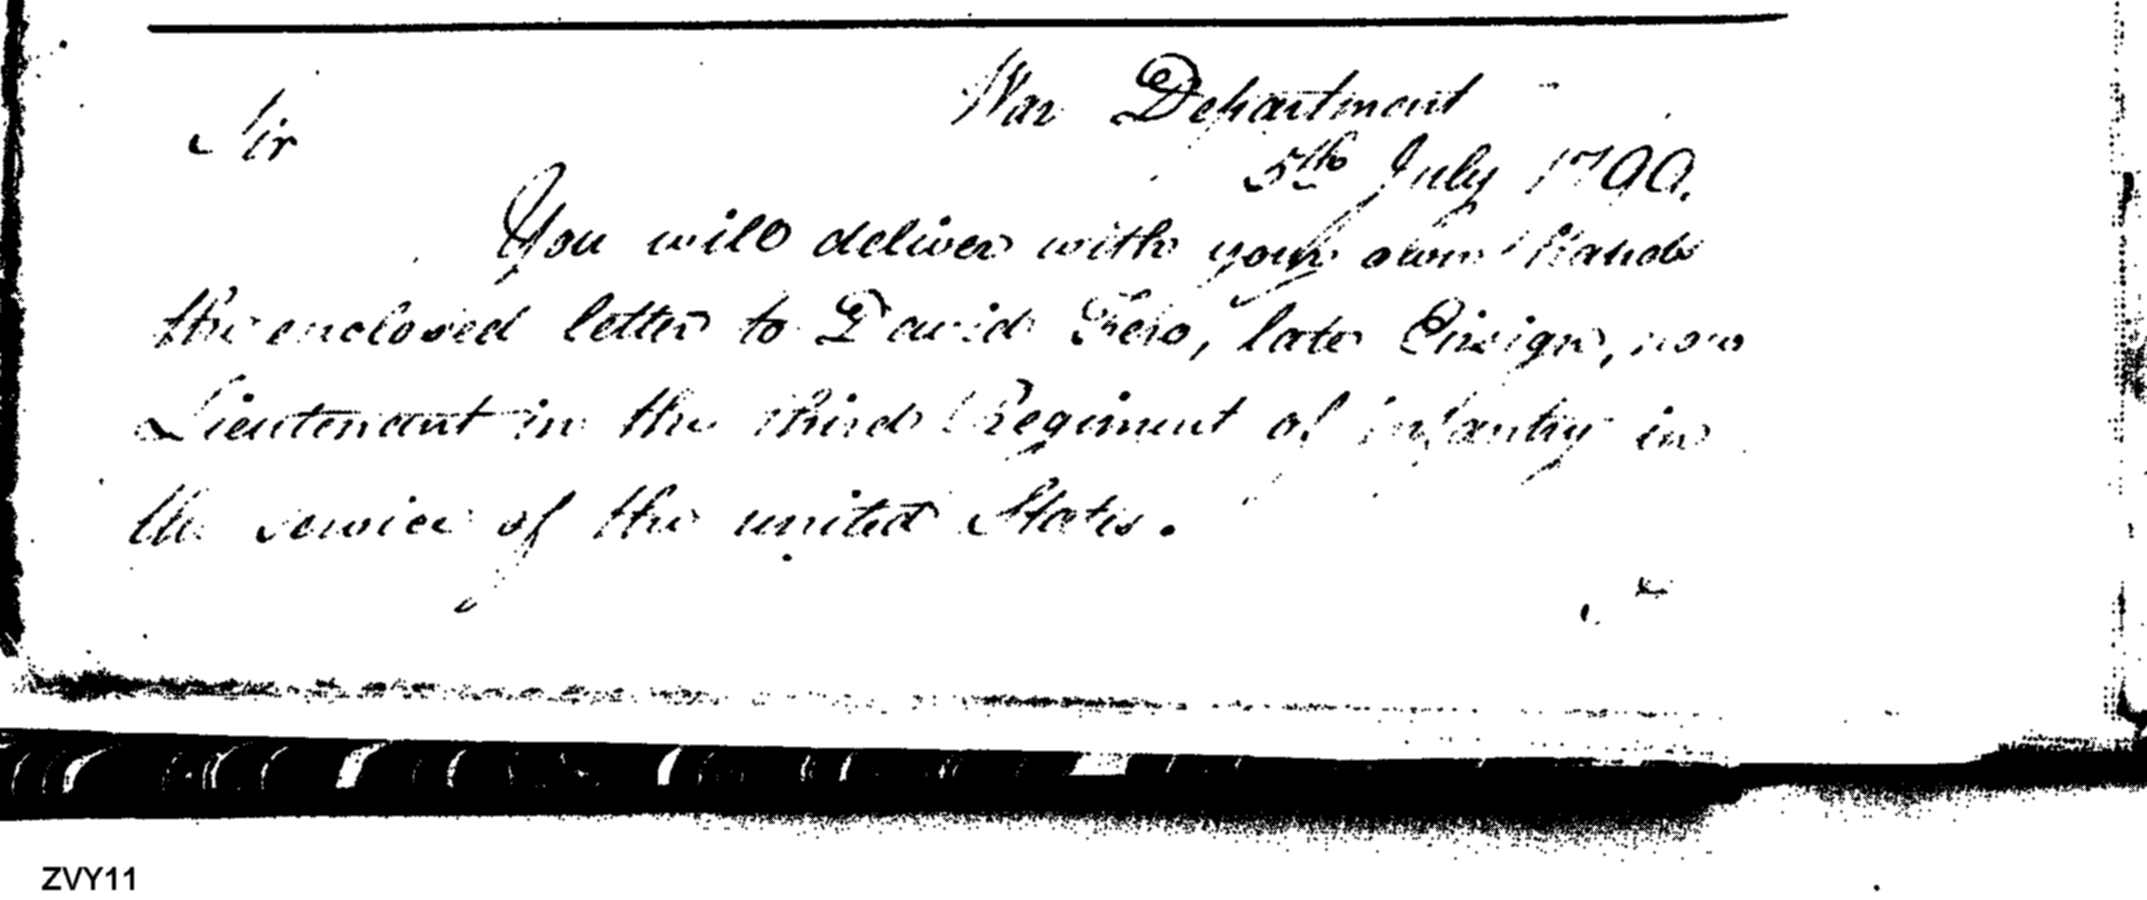 War Department
Sir
5th July 1799.
You will deliver with your own Hands
the enclosed letter to David Fero, late Ensign, now
Lieutenant in the third Regiment of infantry in
the service of the united States.
ZVY11